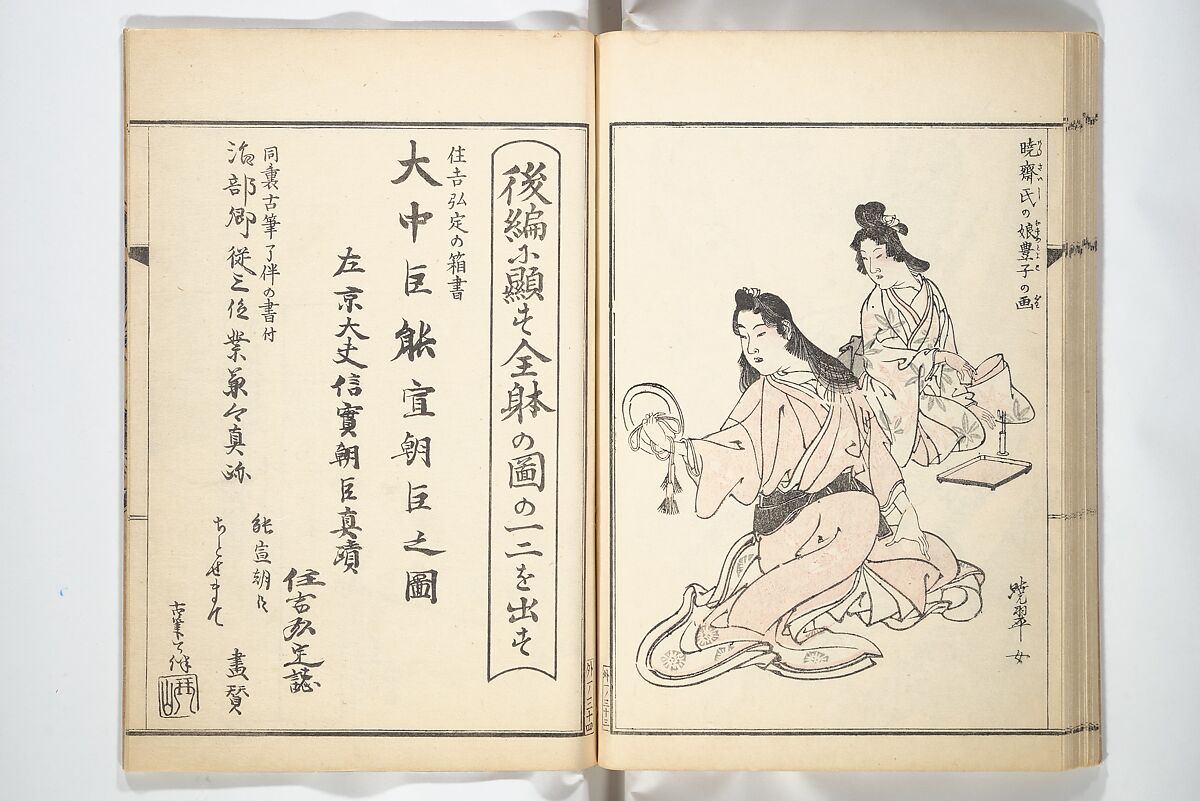 暁齋氏の娘豊子の画
暁翠女
外一ノ三十三
後編に顯す全躰の圖の一二を出す
住吉弘定の箱書
大中臣能宣朝臣之圖
左京大夫信實朝臣真蹟
住吉弘定誌
同裏古筆了伴の書付
治部卿従三位業兼々真跡
能宣朝臣
ちとせまて
畫賛
古筆了伴
外一ノ三十四